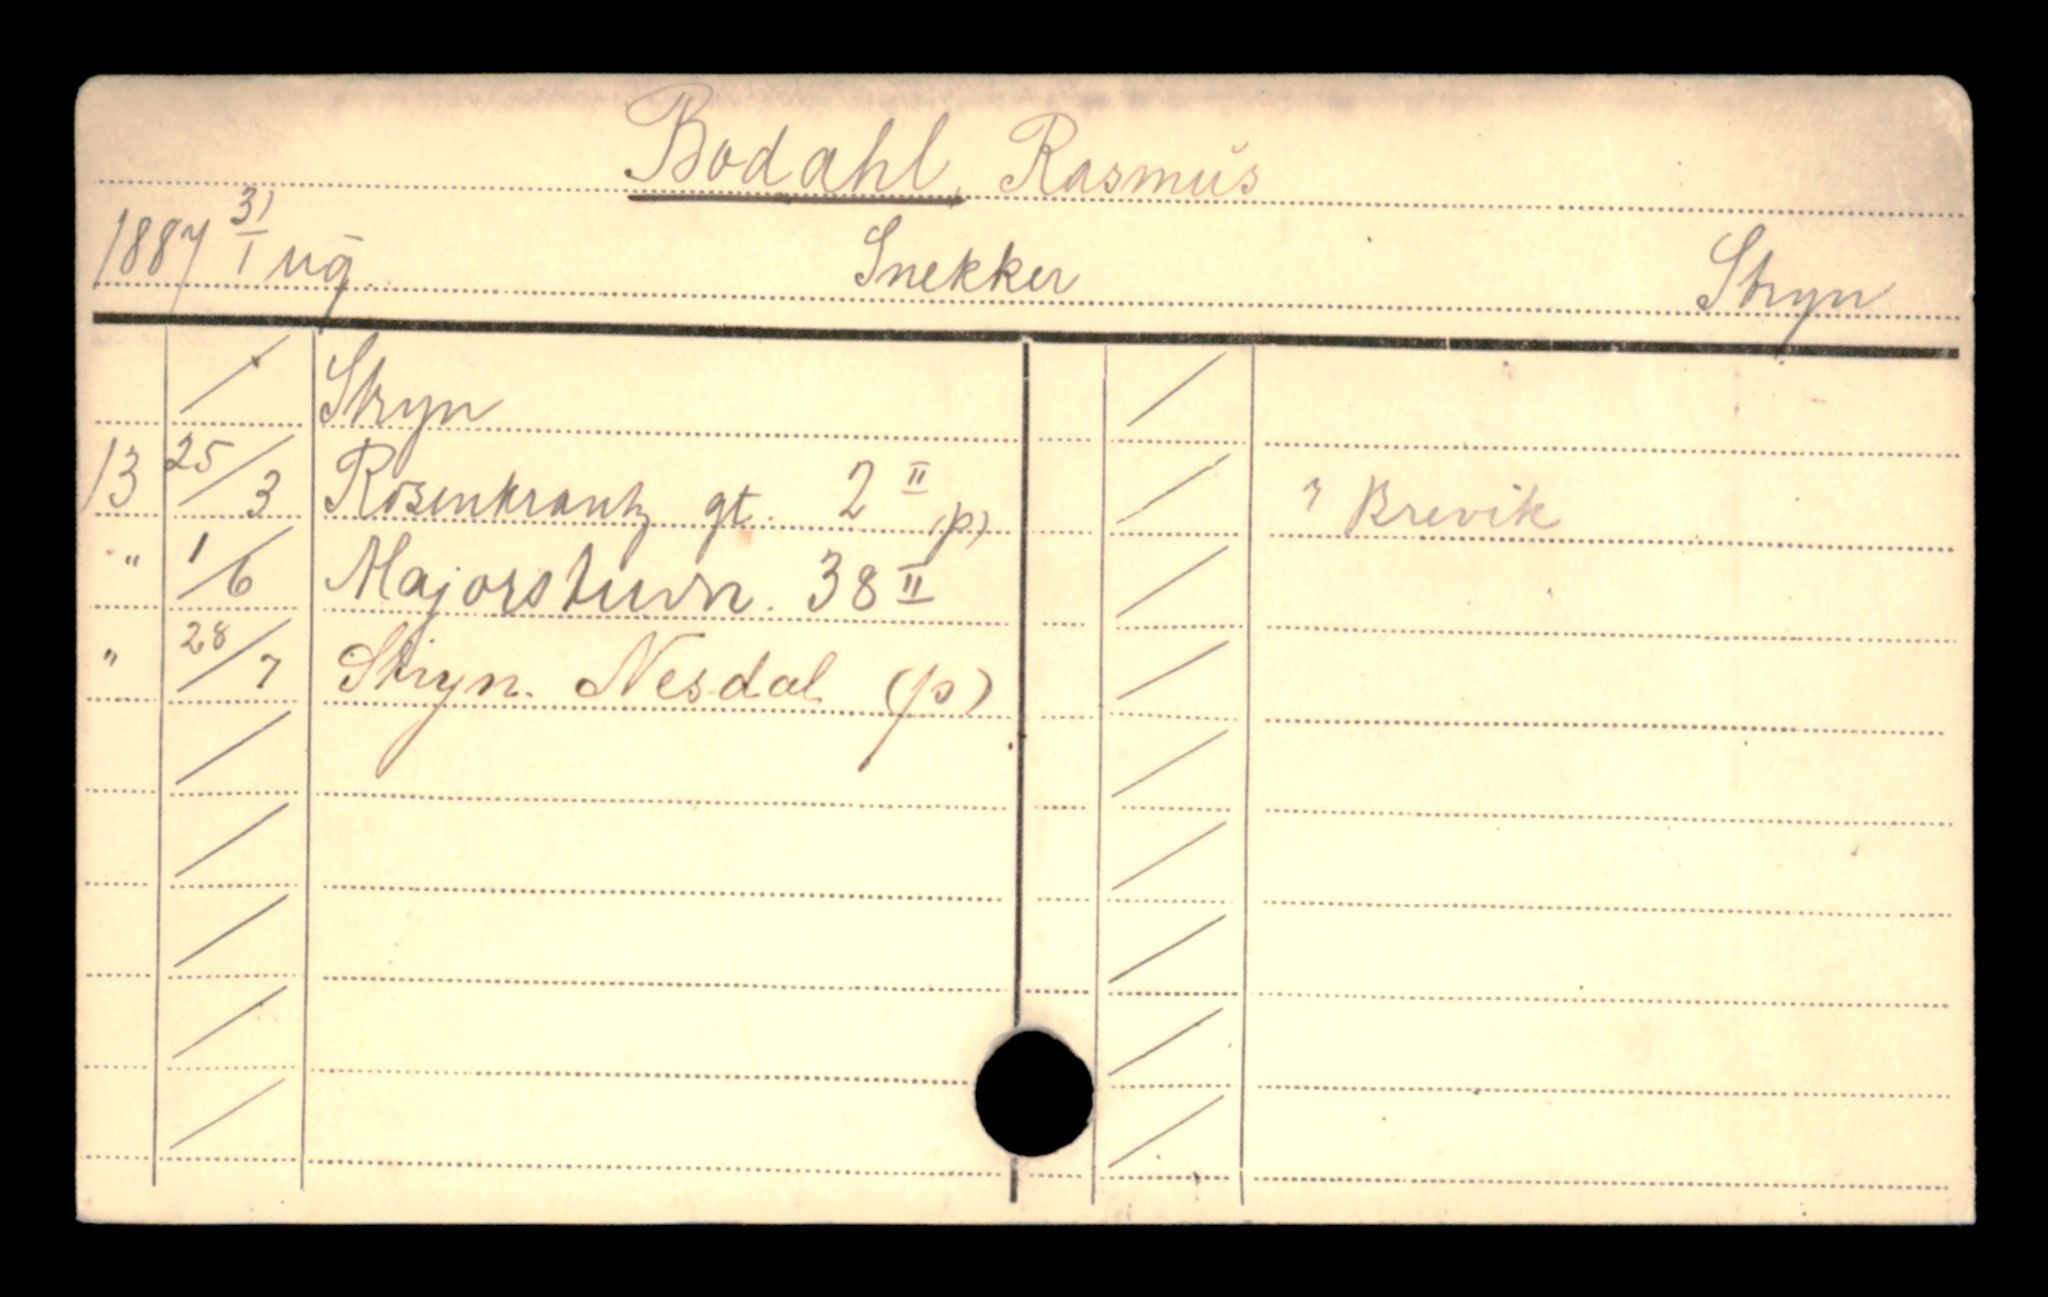 Bodahl, Rasmus
1887 31/1 ug. Snekker Stryn
Stryn
13 25/3 Rosenkrantz gt. 2 II (p)
" 1/6 Majorstuvn. 38 II
" 28/7 Stryn. Nesdal (p)
Brevik